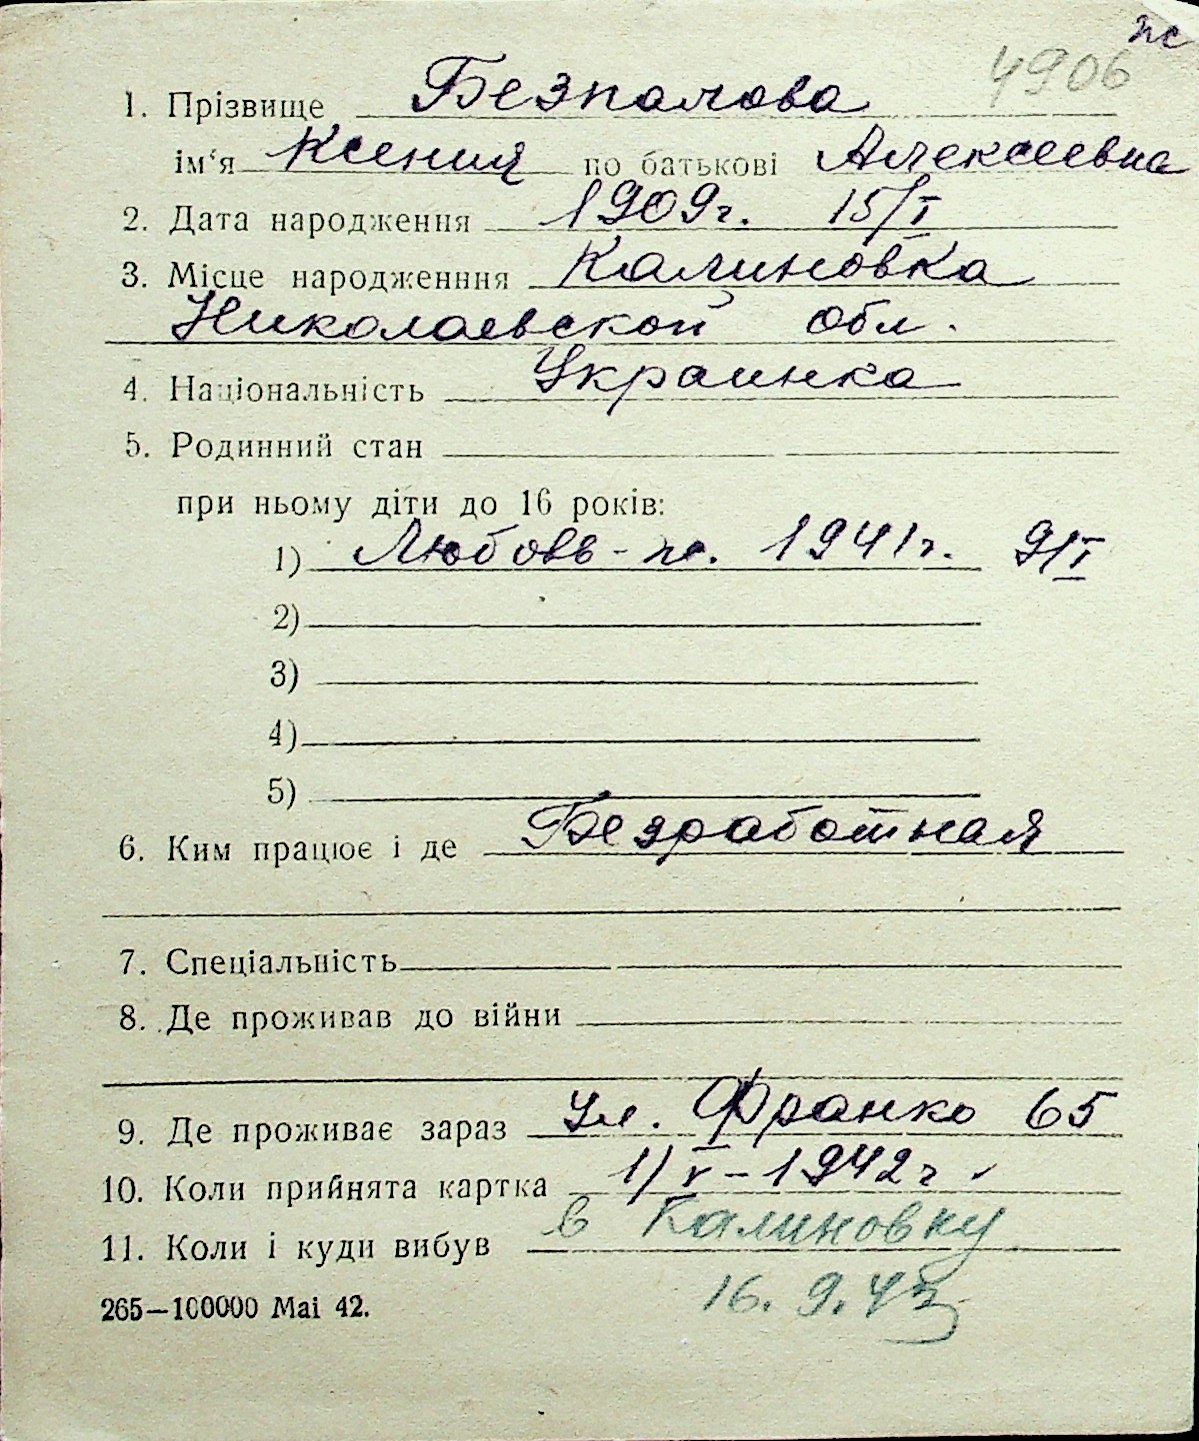 пс
4906
1. Прізвище Безпалова
ім‘я Ксения по батькові Алексеевна
2. Дата народження 1909г. 15/I
3. Місце народженння Калиновка
Николаевской обл.
4. Національність Украинка
5. Родинний стан
при ньому діти до 16 років:
1) Любовь - пс. 1941г. 9/I
2)
3)
4)
5)
6. Ким працює і де Безработная
7. Спеціальність
8. Де проживав до війни
9. Де проживає зараз ул. Франко 65
10. Коли прийнята картка 1/V - 1942г
11. Коли і куди вибув в Калиновку
16. 9. 43
265—100000 Mai 42.